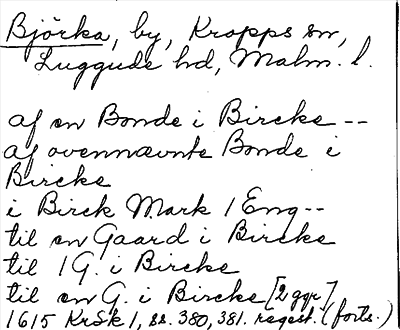 Björka, by, Kropps sn,
Luggude hd, Malm. l.
af en Bonde i Bircke --
af ovennævnte Bonde i
Bircke
i Birck Mark 1 Eng--
til en Gaard i Bircke
til 1 G. i Bircke
til en G. i Bircke [2 ggr],
1615 KrSk 1, ss. 380, 381. regest. (forts.)